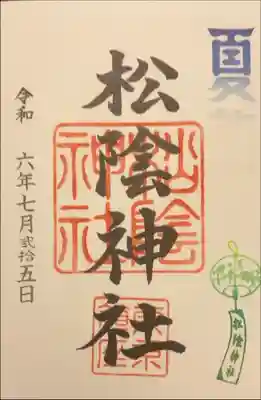 夏
松陰神社
松陰神社
令和 六年七月弐拾五日
松陰神社